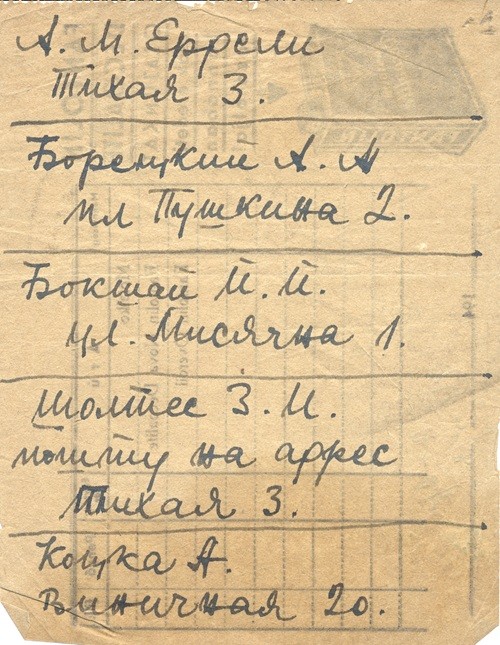 А. М. Ерделі
Тихая 3.
Борецкий А. А
пл Пушкина 2.
Бокшай Й. Й.
ул. Мисячна 1.
Шолтес З. И.
пошту на адрес
Тихая 3.
Коцка А.
Виничная 20.